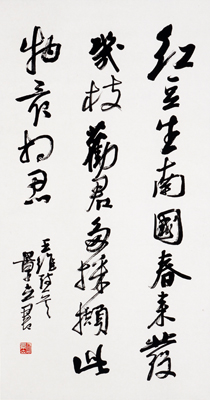 红豆生南國春来發
幾枝勸君多採擷此
物最相思
王維詩